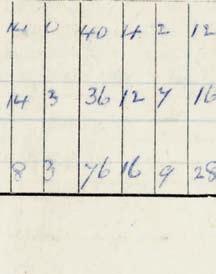 14 0 40 4 2 12
14 3 36 12 7 16
8 3 76 16 9 28